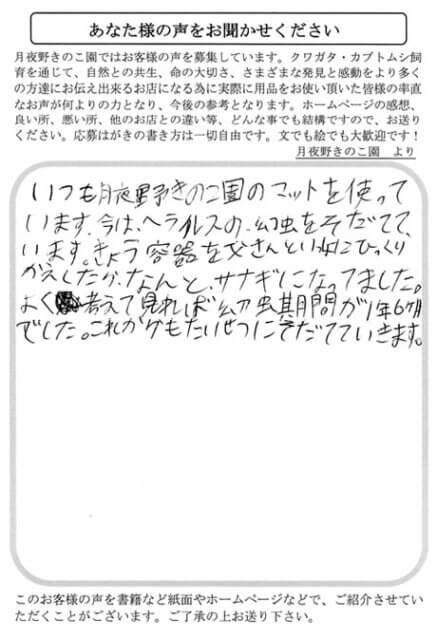 あなた様の声をお聞かせください
月夜野きのこ園ではお客様の声を募集しています。クワガタ・カブトムシ飼
育を通じて、自然との共生、命の大切さ、さまざまな発見と感動をより多く
の方達にお伝え出来るお店になる為に実際に用品をお使い頂いた皆様の率直
なお声が何よりの力となり、今後の参考となります。ホームページの感想、
良い所、悪い所、他のお店との違い等、どんな事でも結構ですので、お送り
ください。応募はがきの書き方は一切自由です。文でも絵でも大歓迎です！
月夜野きのこ園　より
いつも月夜野きのこ園のマットを使って
います。今は、ヘラクレスの、幼虫をそだてて、
います。きょう容器を父さんといっしょにひっくり
かえしたが、なんと、サナギになってました。
よく考えて見れば幼虫期間が1年6ヶ月
でした。これからもたいせつにそだてていきます。
このお客様の声を書籍など紙面やホームページなどで、ご紹介させてい
ただくことがございます。ご了承の上お送り下さい。